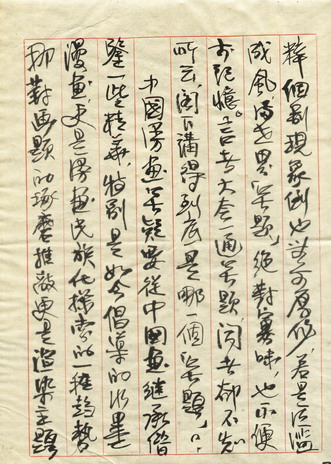 粹個别現象倒也無可厚非，若是泛濫
成風滿世界“無題”，絕對寡味，也不便
於記憶。言者大侃一通無題，聞者卻不知
所云閣下講得到底是哪一個“無題”！？
中國漫畫無疑要從中國畫繼承借
鑒一些精華，特别是如今倡導的水墨
漫畫，更是漫畫民族化探索的一種趨勢
那對畫題的琢磨推敲更是渲染主題